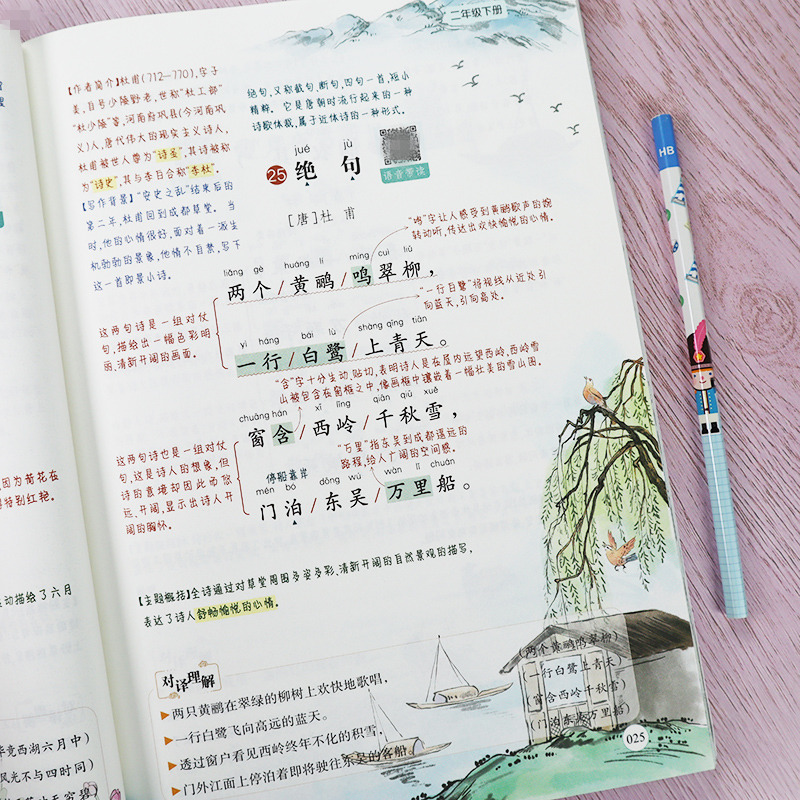 二年级下册
【作者简介】杜甫(712—770),字子
美,自号少陵野老,世称“杜工部”
“杜少陵”等,河南府巩县(今河南巩
义)人,唐代伟大的现实主义诗人,
杜甫被世人尊为“诗圣”,其诗被称
为“诗史”,其与李白合称“李杜”。
【写作背景】“安史之乱”结束后的
第二年,杜甫回到成都草堂。当
时,他的心情很好,面对着一派生
机勃勃的景象,他情不自禁,写下
这一首即景小诗。
绝句,又称截句,断句,四句一首,短小
精粹。它是唐朝时流行起来的一种
诗歌体裁,属于近体诗的一种形式。
jué jù
25 绝 句
语音带读
[唐]杜 甫
“鸣”字让人感受到黄鹂歌声的婉
转动听,传达出欢快愉悦的心情。
liǎng gè huáng lí míng cuì liǔ
两个/黄鹂/鸣翠柳,
“一行白鹭”将视线从近处引
向蓝天,引向高处。
这两句诗是一组对仗
句,描绘出一幅色彩明
丽,清新开阔的画面。
yì háng bái lù shàng qīng tiān
一行/白鹭/上青天。
“含”字十分生动,贴切,表明诗人是在屋内远望西岭,西岭雪
山被包含在窗框之中,像画框中镶嵌着一幅壮美的雪山图。
chuāng hán xī lǐng qiān qiū xuě
窗含/西岭/千秋雪,
“万里”指东吴到成都遥远的
路程,给人广阔的空间感。
这两句诗也是一组对仗
句,这是诗人的想象,但
诗的意境却因此而悠
远、开阔,显示出诗人开
阔的胸怀。
停船靠岸
mén bó dōng wú wàn lǐ chuán
门泊/东吴/万里船。
【主题概括】全诗通过对草堂周围多姿多彩,清新开阔的自然景观的描写,
表达了诗人舒畅愉悦的心情。
对译理解
两只黄鹂在翠绿的柳树上欢快地歌唱,
(两个黄鹂鸣翠柳)
一行白鹭飞向高远的蓝天。
(一行白鹭上青天)
透过窗户看见西岭终年不化的积雪,
(窗含西岭千秋雪)
门外江面上停泊着即将驶往东吴的客船。
(门泊东吴万里船)
025
因为菊花在
得特别红艳。
动描绘了六月
毕竟西湖六月中)
风光不与四时同)
HB